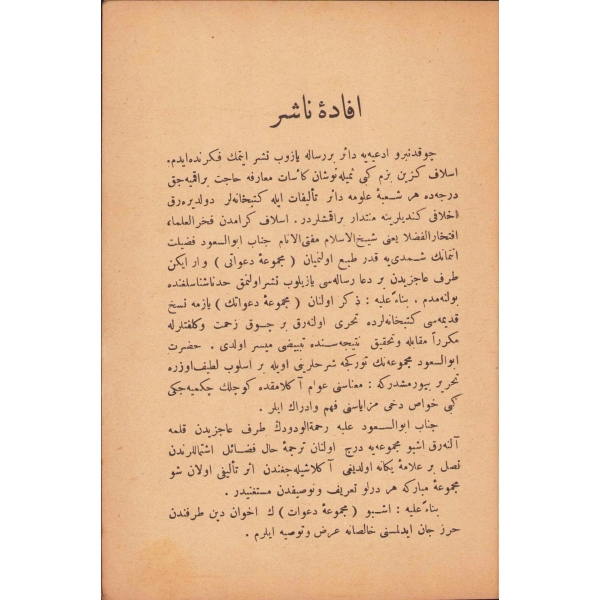 افادهٔ ناشر
چوقدنبرو ادعیه‌یه دائر بر رساله یازوب نشر ایتمك فكرنده‌ایدم.
اسلاف كزین بزم كبی تمیله‌نوشان كأسات معارفه حاجت براقمیه‌جق
درجه‌ده هر شعبهٔ علومه دائر تألیفات ایله كتبخانه‌لر دولدیره‌رق
اخلافی كندیلرینه منتدار براقمشلردر. اسلاف كرامدن فخرالعلماء
افتخارالفضلا یعنی شیخ‌الاسلام مفتی‌الانام جناب ابوالسعود فضیلت
انتمانك شمدی‌یه قدر طبع اولنمیان ( مجموعهٔ دعواتی ) وار ایكن
طرف عاجزیدن بر دعا رساله‌سی یازیلوب نشر اولنمق حدناشناسلغنده
بولنه‌مدم . بناءً علیه : ذكر اولنان ( مجموعهٔ دعواتك ) یازمه نسخ
قدیمه‌سی كتبخانه‌لرده تحری اولنه‌رق بر چوق زحمت وكلفتلرله
مكرراً مقابله و تحقیق نتیجه‌سنده تبییضی میسر اولدی . حضرت
ابوالسعود مجموعه‌نك توركجه شرحلرینی اویله بر اسلوب لطیف‌اوزره
تحریر بیورمشدركه : معناسنی عوام آكلامقده كوچلك چكمیه‌جكی
كبی خواص دخی مزایاسنی فهم وادراك ایلر .
جناب ابوالسعود علیه رحمةالودودك طرف عاجزیدن قلمه
آلنه‌رق اشبو مجموعه‌یه درج اولنان ترجمهٔ حال فضائل اشتماللرندن
نصل بر علامهٔ یكانه اولدیغی آكلاشیله‌جغندن اثر تألیفی اولان شو
مجموعهٔ مباركه هر درلو تعریف وتوصیفدن مستغنیدر .
بناءً علیه : اشبو ( مجموعهٔ دعوات ) ك اخوان دین طرفندن
حرز جان ایدلمسنی خالصانه عرض وتوصیه ایلرم .